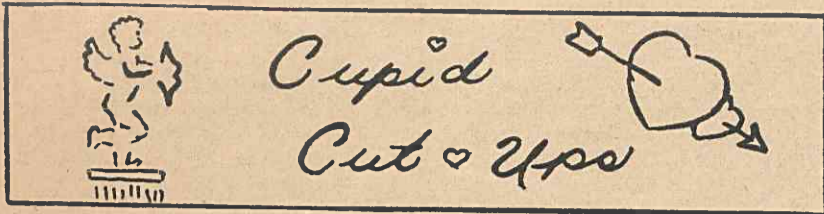 Cupid
Cut ♡ Ups